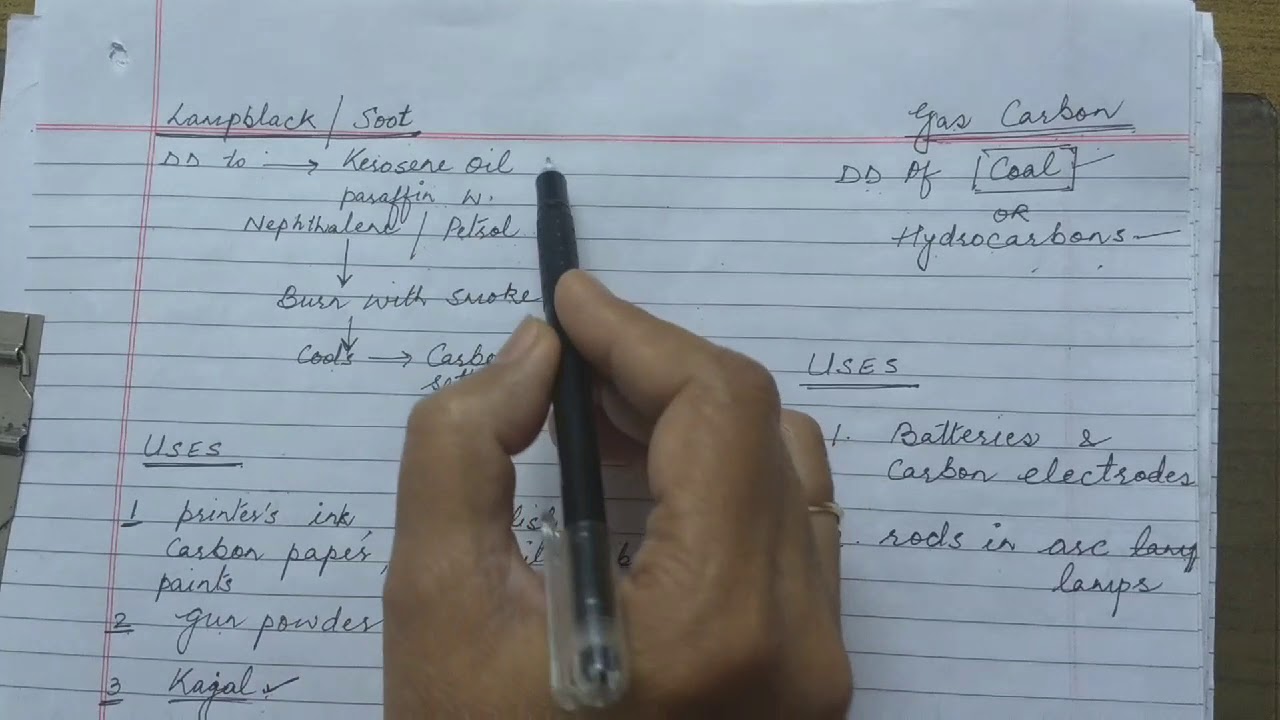 Lampblack / Soot
DD to → Kerosene oil
paraffin w.
Nephthalene / Petrol
↓
Burn with smoke
↓
Cools →
USES
1 printer's ink,
Carbon paper,
paints
2 Gun powder
3 Kajal ✓
Gas Carbon
DD of [Coal]
OR
Hydrocarbons
USES
1. Batteries &
Carbon electrodes
rods in arc
lamps